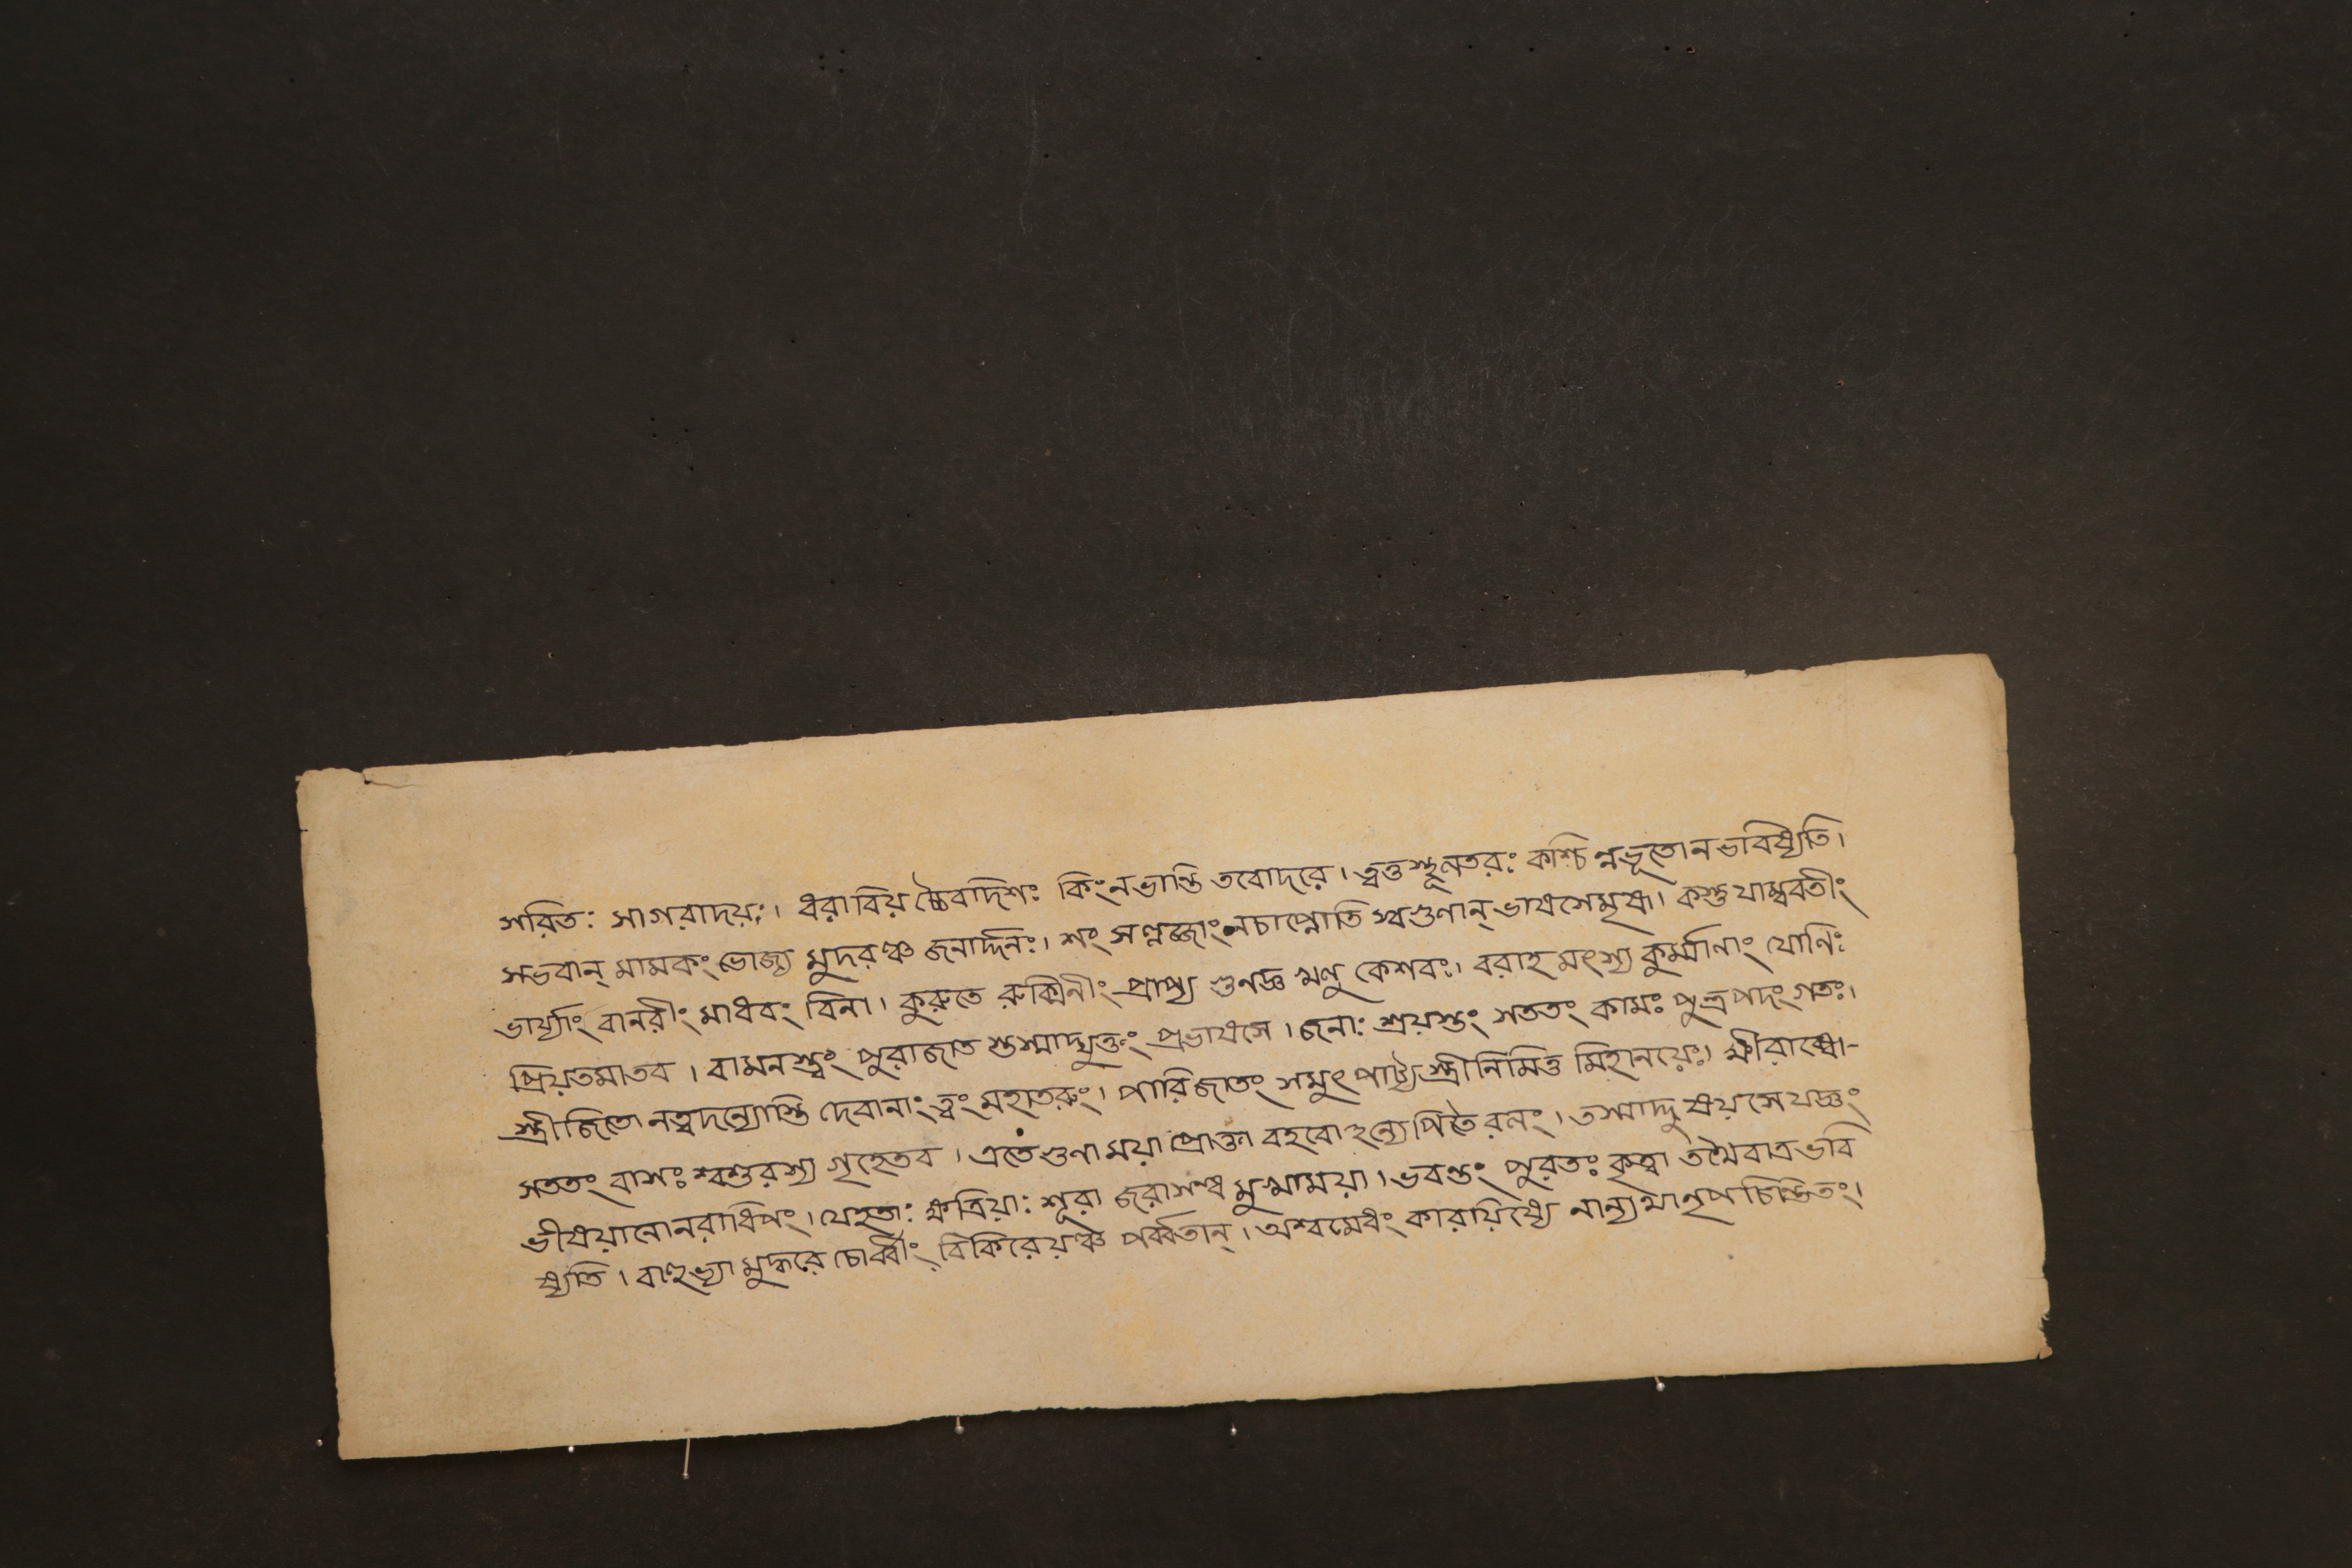 সরিতঃ সাগরাদয়ঃ। ধরাবিয়চ্চৈবদিশঃ কিংনভান্তি তবোদরে। ত্বত্তস্থূলতরঃ কশ্চিন্নভূতোনভবিষ্যতি।
সভবান্ মামকং ভোজ্য মুদরঞ্চ জনার্দ্দনঃ। শং নচাপ্নোতি স্বগুণান্ ভাষসেমৃষা। কস্তু যাম্ববতীং
ভার্য্যাং বানরীং মাধবং বিনা। কুরুতে রুক্মিনীং প্রাপ্য গুণজ্ঞ কেশবঃ। বরাহ মৎস্য কুর্ম্মাণাং যোনিঃ
প্রিয়তমাতব। বামনস্ত্বং পুরাজাত স্তস্মাদ্যুক্তং প্রভাষসে। জনাঃ শ্রয়স্তং সততং কামঃ পুত্রপদংগতঃ।
স্ত্রীজিতো নত্বদন্যোস্তি দেবানাং ত্বং মহাতরুং। পারিজাতং সমুৎপাট্য স্ত্রীনিমিত্ত মিহানয়েঃ। ক্ষীরাব্ধৌ-
সততং বাসঃ শ্বশুরস্য গৃহেতব। এতে গুণা ময়া প্রোক্তা বহবো হন্যেপিতৈরলং। তস্মাদ্দুষয়সে যজ্ঞং
ভীষয়ানোনরাধিপং। যেহতাঃ ক্ষত্রিয়াঃ শূরা জরাসন্ধ মুখাময়া। ভবন্তং পুরতঃ কৃত্বা তথৈবাত্রভবি
ষ্যতি। বাহুভ্যা মুদ্ধরে চোর্ব্বীং বিকিরেয়ঞ্চ পর্ব্বতান্। অশ্বমেধং কারয়িষ্যে নান্যথানৃপ চিন্তিতং।